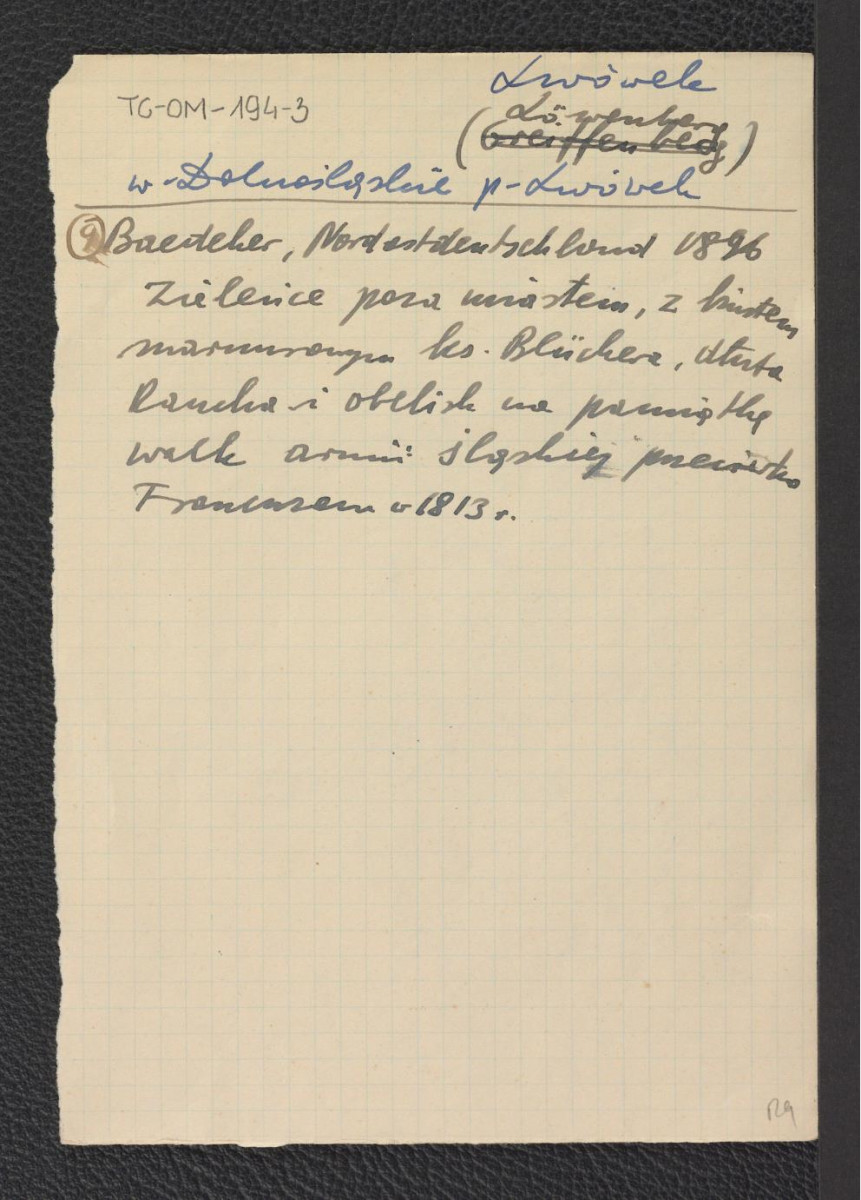 Lwówek
TG-OM-194-3
Löwenberg
(Greiffenberg)
w-Dolnośląskie p-Lwówek
9 Baedeker, Nordostdeutschland 1896
Zieleńce poza miastem, z biustem
marmurowym ks. Blüchera, dłuta
Raucha i obelisk na pamiątkę
walk armii śląskiej przeciwko
Francuzom w 1813 r.